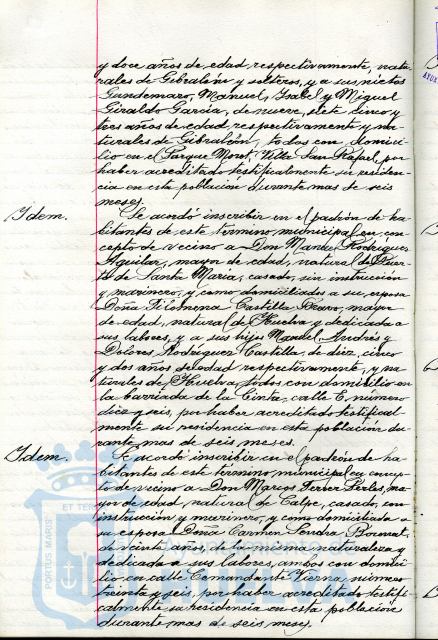 y doce años de edad, respectivamente, natu-
rales de Gibraleón y solteros, y a sus nietos
Gundemaro, Manuel, Isabel y Miguel
Giraldo García, de nueve, siete cinco y
tres años de edad respectivamente y na-
turales de Gibraleón, todos con domici-
lio en el Parque Mont, Villa San Rafael, por
haber acreditado testificalmente su residen-
cia en esta población durante mas de seis
meses.
Idem. Se acordó inscribir en el padrón de ha-
bitantes de este término municipal, en con-
cepto de vecino a Don Manuel Rodríguez
Aguilar, mayor de edad, natural de Puer-
to de Santa María, casado, sin instrucción
y marinero, y como domiciliados a su esposa
Doña Filomena Castilla, mayor
de edad, natural de Huelva y dedicada a
sus labores, y a sus hijos Manuel, Andrés y
Dolores Rodríguez Castilla, de diez, cinco
y dos años de edad respectivamente, y na-
turales de Huelva, todos con domicilio en
la barriada de la Cinta, calle E, número
diez y seis, por haber acreditado testifical-
mente su residencia en esta población du-
rante mas de seis meses.
Idem. Se acordó inscribir en el padrón de ha-
bitantes de este término municipal en concep-
to de vecino a Don Marcos Ferrer Perles, ma-
yor de edad, natural de Calpe, casado, con
instrucción y marinero, y como domiciliada a
su esposa Doña Carmen
de veinte años, de la misma naturaleza y
dedicada a sus labores, ambos con domici-
lio en calle Comandante Vierna, número
treinta y seis, por haber acreditado testifi-
calmente su residencia en esta población
durante mas de seis meses.
PORTUS MARIS
ET TER
Ayuntamiento de